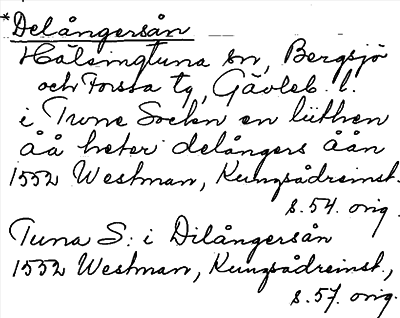 *Delångersån
Hälsingtuna sn, Bergsjö
och Forsa tg, Gävleb. l.
i Twne Sockn en liithen
åå heter delångers åån
1552 Westman, Kungsådreinst.
s. 54. orig.
Tuna S: i Dilångersån
1552 Westman, Kungsådreinst.,
s. 57. orig.